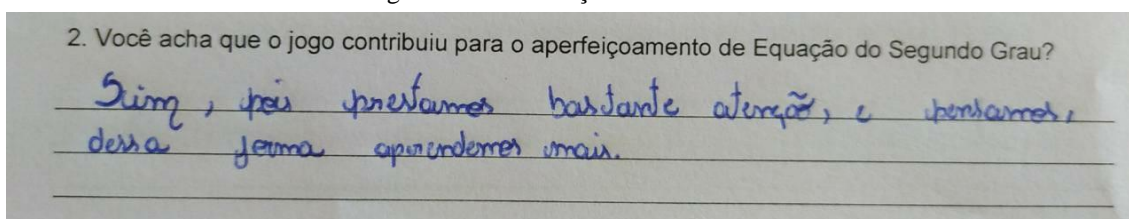 2. Você acha que o jogo contribuiu para o aperfeiçoamento de Equação do Segundo Grau?
Sim, pois prestamos bastante atenção, e pensamos,
dessa forma aprendemos mais.